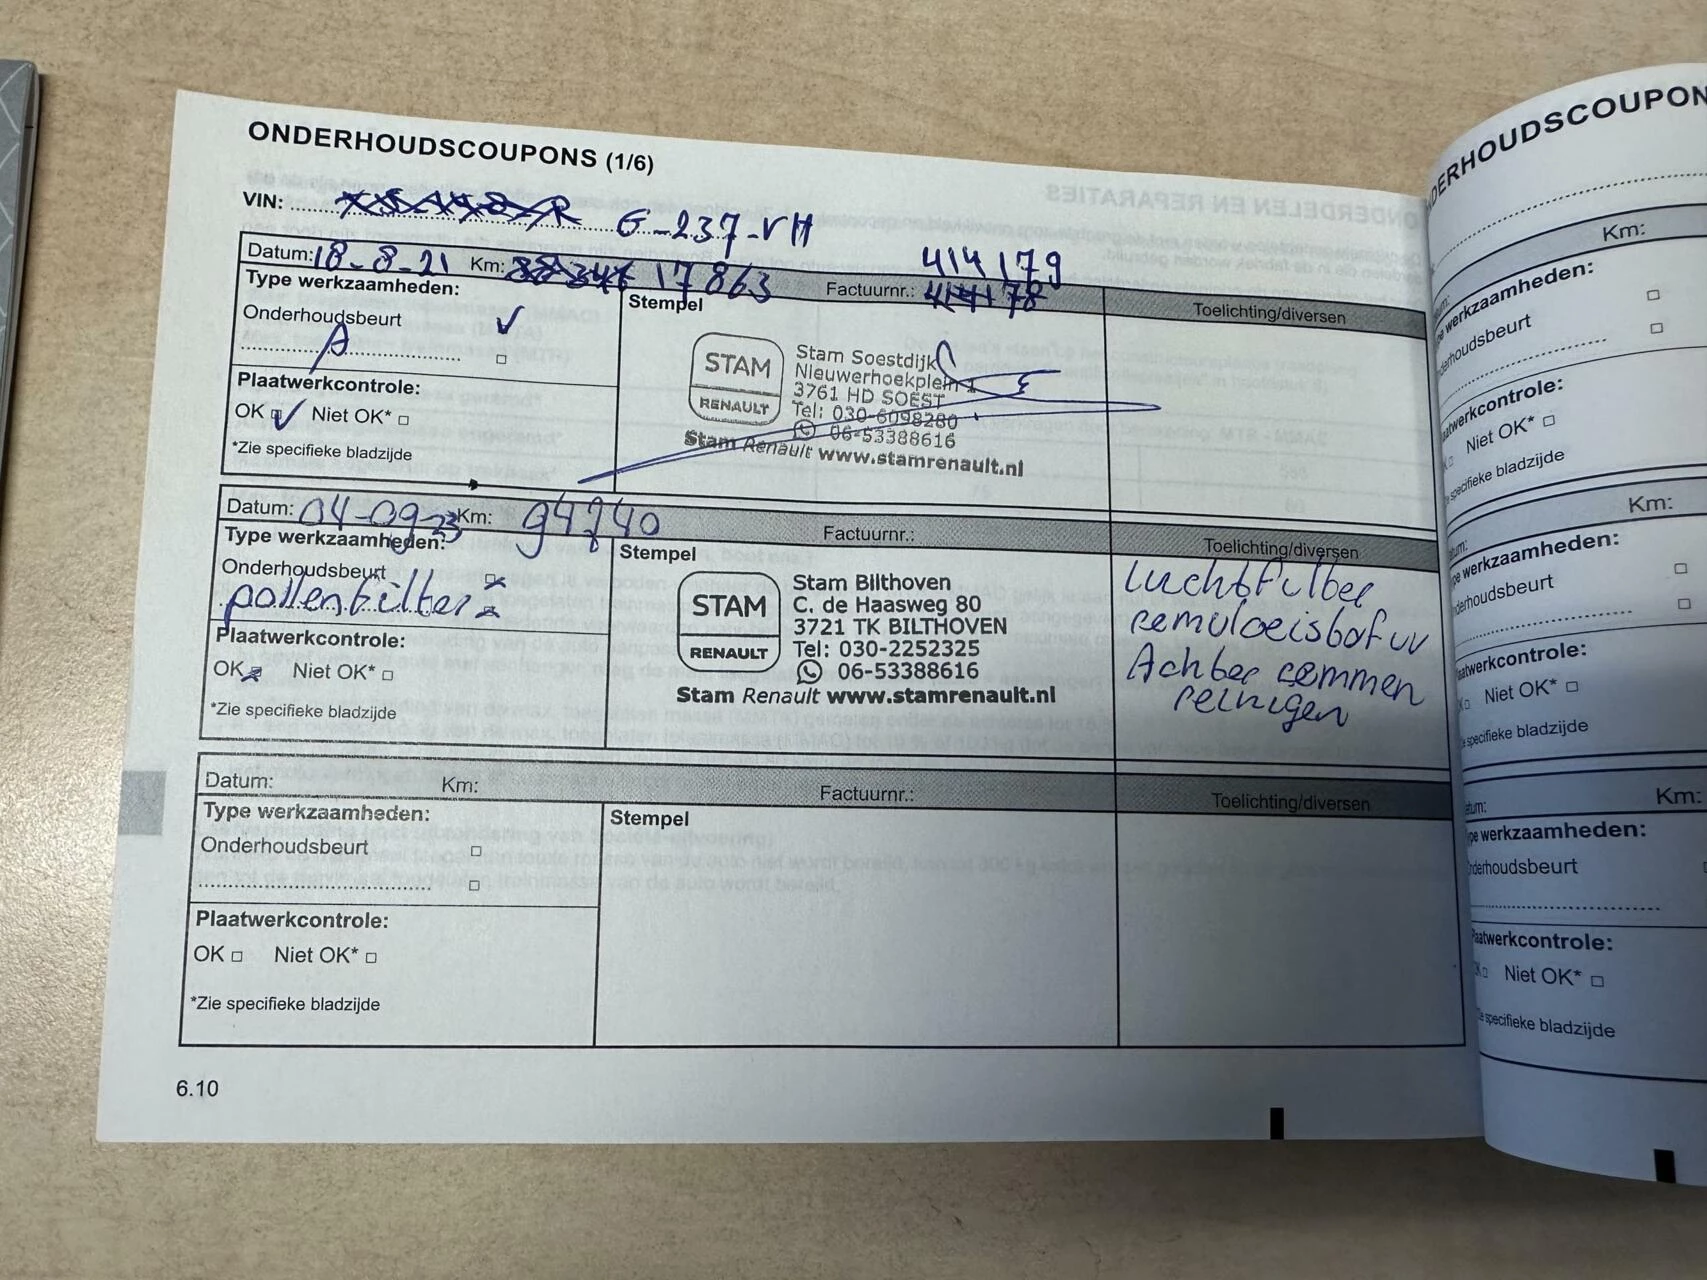 ONDERHOUDSCOUPONS (1/6)
VIN: G-237-VH
Datum: 18-8-21 Km: 17863 Factuurnr.: 414179
414178
Toelichting/diversen
Type werkzaamheden:
Stempel
Onderhoudsbeurt
A
Plaatwerkcontrole:
OK Niet OK*
*Zie specifieke bladzijde
STAM
RENAULT
Stam Soestdijk
Nieuwerhoekplein 1
3761 HD SOEST
Tel: 030-6098280
06-53388616
Stam Renault www.stamrenault.nl
Datum: 04-09-23 Km: 94740 Factuurnr.:
Toelichting/diversen
Type werkzaamheden:
Stempel
Onderhoudsbeurt
pollenfilter
Plaatwerkcontrole:
OK Niet OK*
*Zie specifieke bladzijde
STAM
RENAULT
Stam Bilthoven
C. de Haasweg 80
3721 TK BILTHOVEN
Tel: 030-2252325
06-53388616
Stam Renault www.stamrenault.nl
Luchtfilter
remvloeistof vv
Achter remmen
reinigen
Datum: Km: Factuurnr.:
Toelichting/diversen
Type werkzaamheden:
Stempel
Onderhoudsbeurt
Plaatwerkcontrole:
OK Niet OK*
*Zie specifieke bladzijde
6.10
DERHOUDSCOUPON
Km:
werkzaamheden:
houdsbeurt
werkcontrole:
Niet OK*
specifieke bladzijde
Km:
werkzaamheden:
derhoudsbeurt
aatwerkcontrole:
Niet OK*
specifieke bladzijde
Km:
pe werkzaamheden:
nderhoudsbeurt
aatwerkcontrole:
Niet OK*
specifieke bladzijde
ONDERDELEN EN REPARATIES